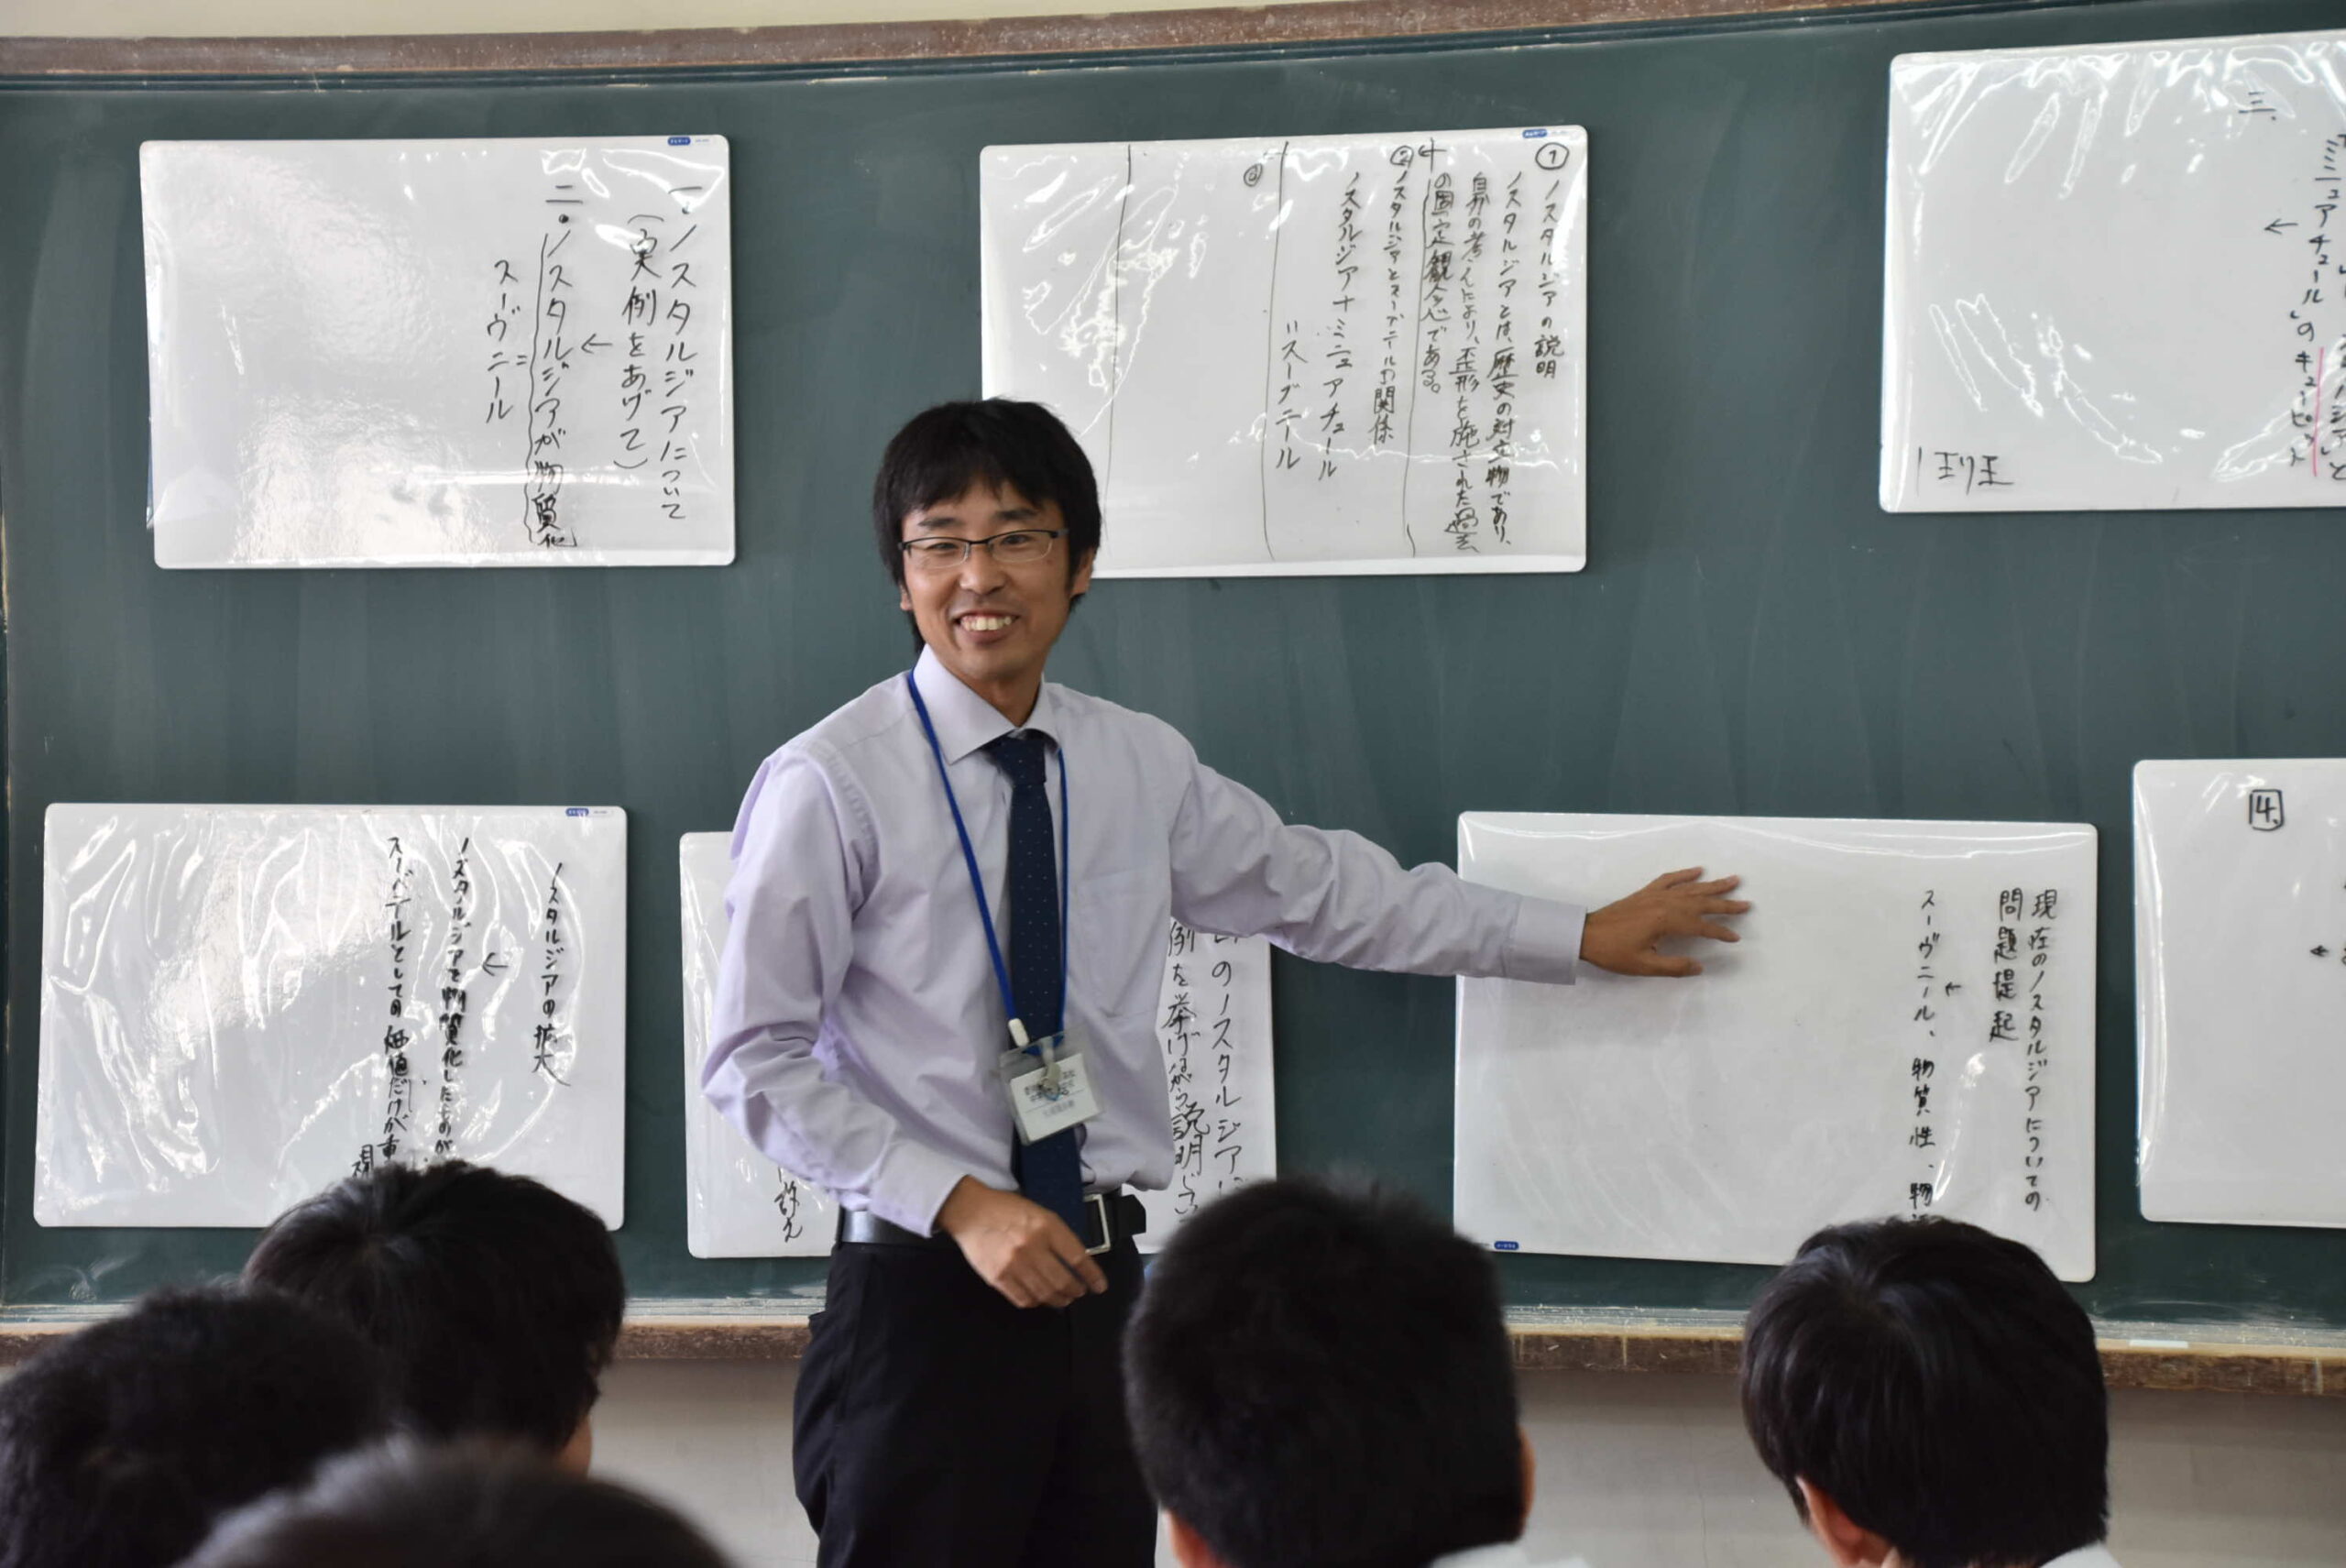 一、ノスタルジアについて
（実例をあげて）
←
二。ノスタルジアが物質化
＝
スーヴニール
① ノスタルジアの説明
ノスタルジアとは、歴史の対立物であり、
自分の考えにより、歪形を施された過去
の固定観念である。
② ノスタルジアとスーブニールの関係
ノスタルジア＋ミニュアチュール
＝スーブニール
③
三、
ミニュアチュール」のキューピット
←
ノスタルジアの拡大
←
ノスタルジアを物質化したものが
スーベニールとしての価値だけが重
視
のノスタルジア
例を挙げながら説明している
現在のノスタルジアについての
問題提起
←
スーヴニール、物質性、物
4.
←